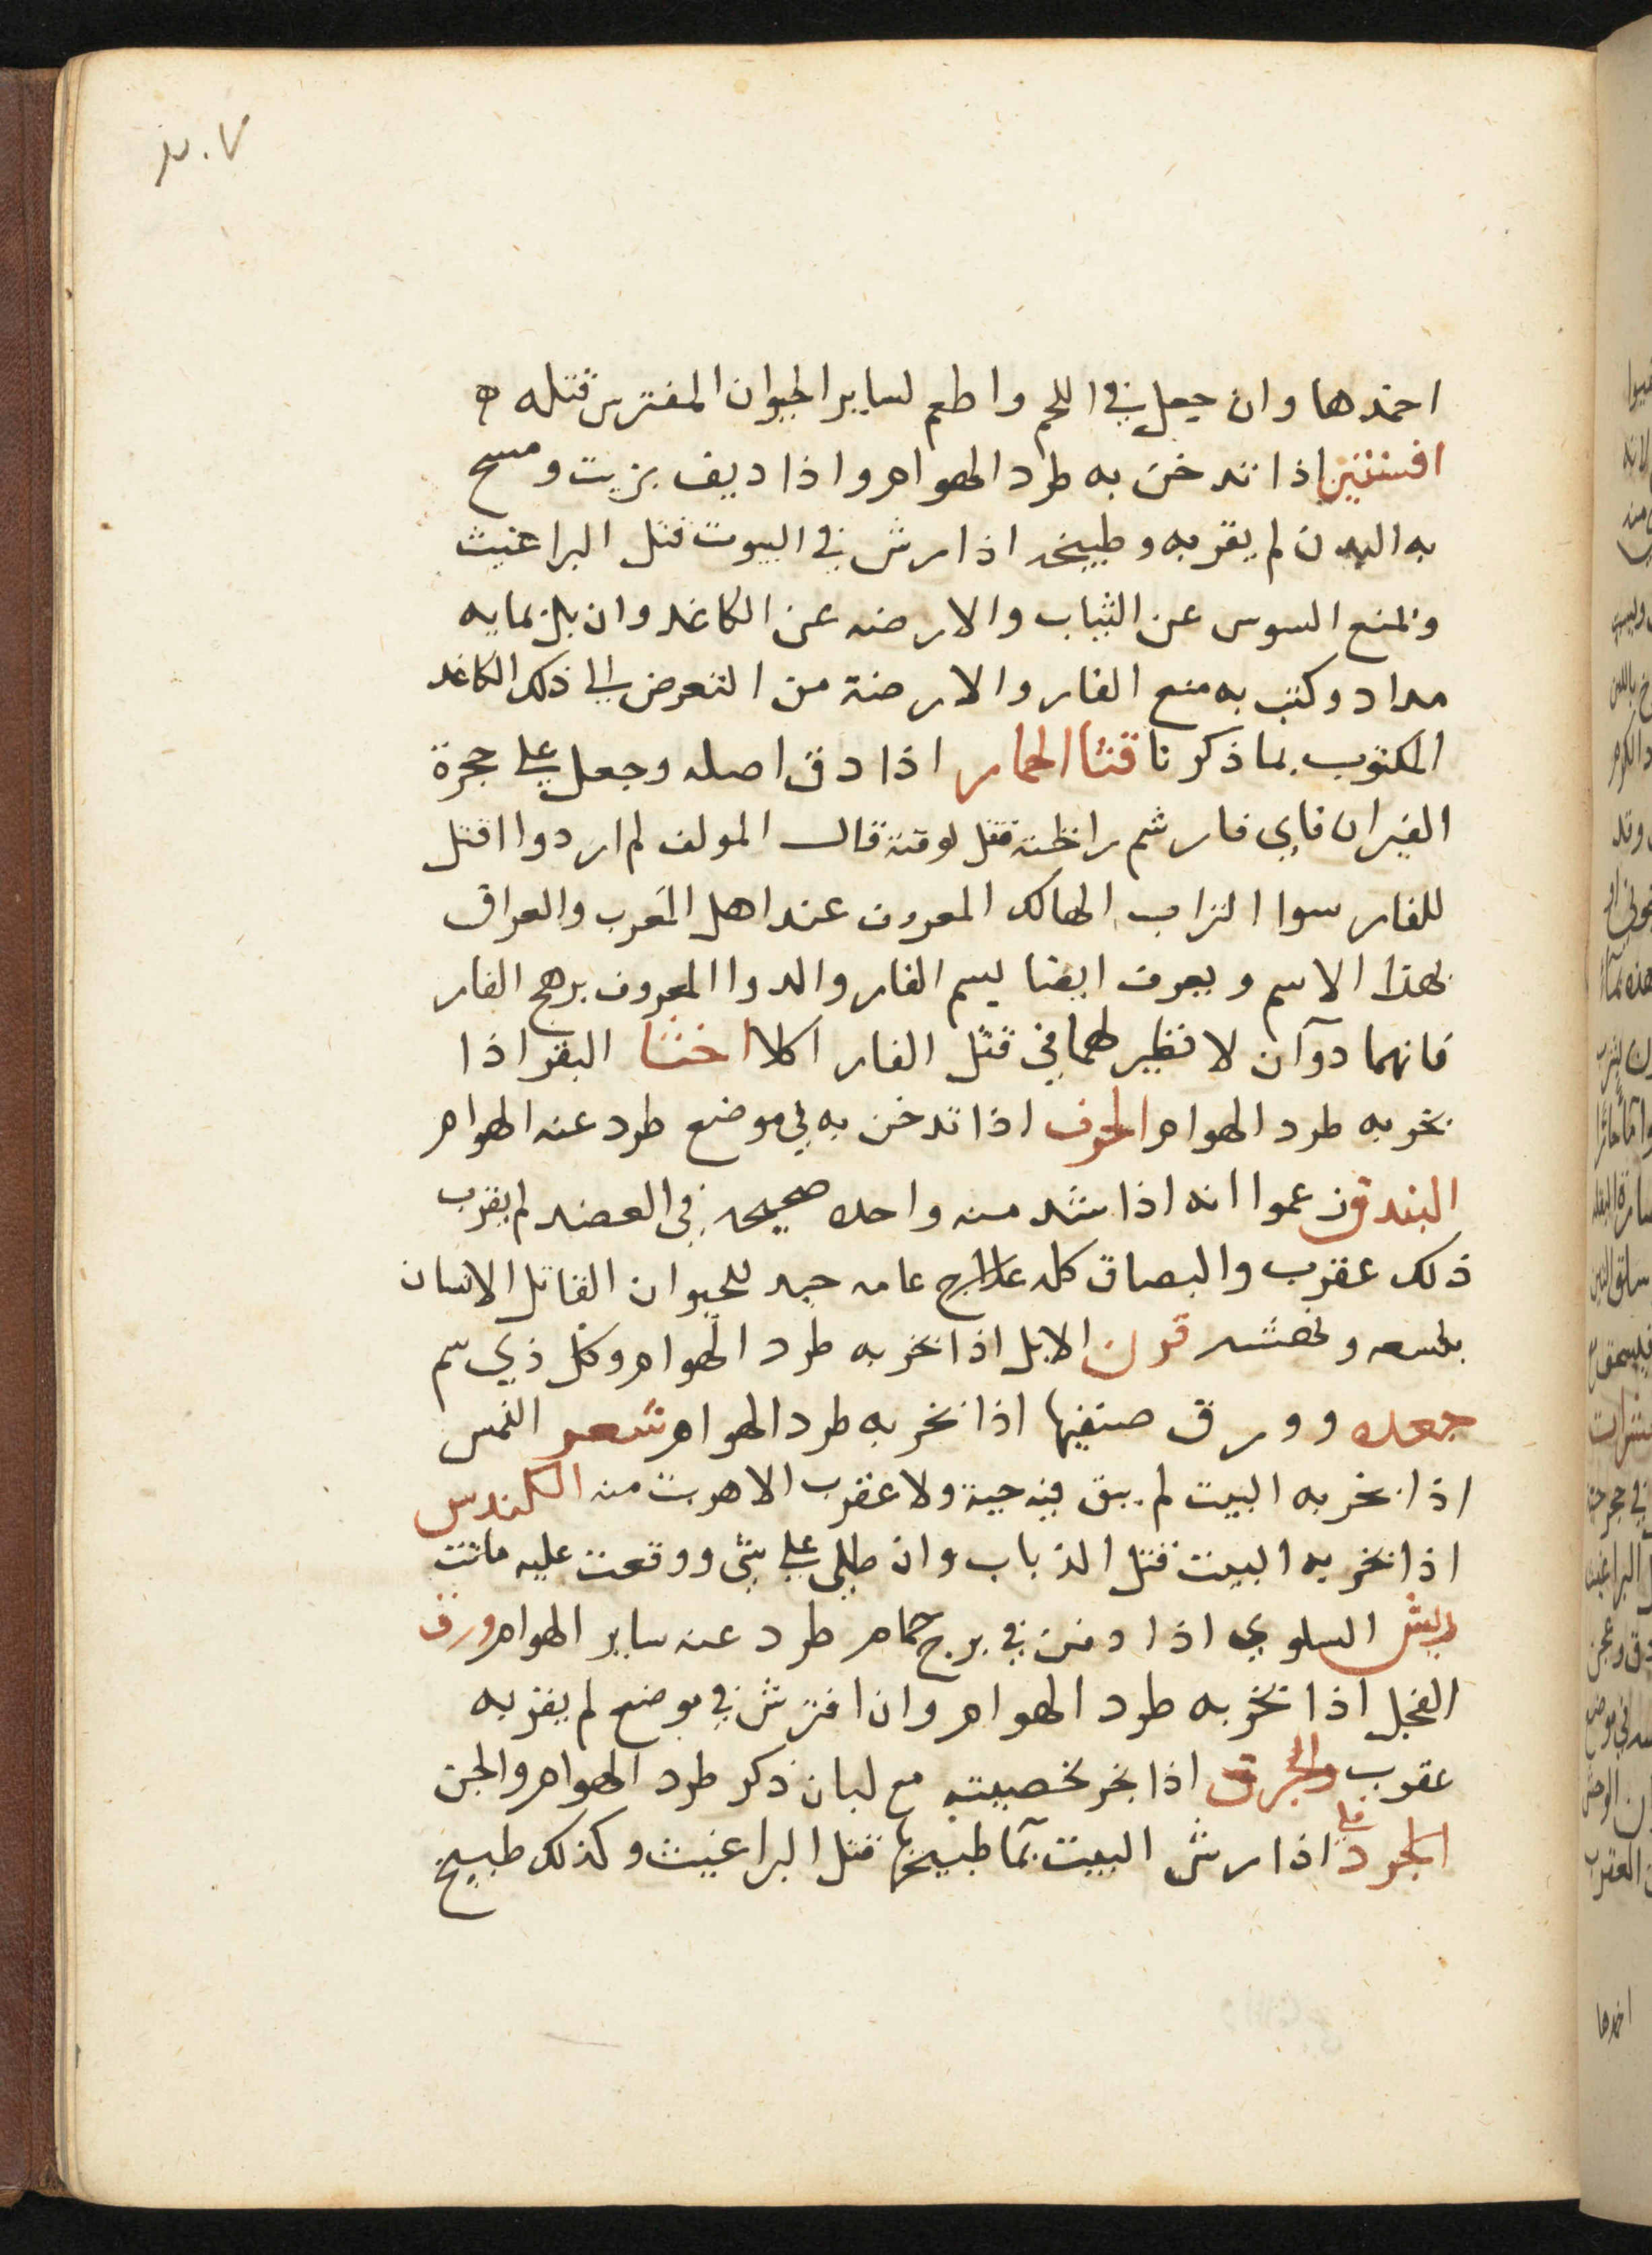 ٢٠٧
اخمدها وان جعل في اللحم واطعم لساير الحيوان المفترس قتله ه
افسنتين اذا تدخن به طرد الهوام واذا ديف بزيت ومسح
به البدن لم يقربه وطبيخه اذا رش في البيوت قتل البراغيث
ويمنع السوس عن الثياب والارضه عن الكاغد وان بل بمايه
مداد وكتب به منع الفار والارضة من التعرض الى ذلك الكاغد
المكتوب بما ذكرنا قثا الحمار اذا دق اصله وجعل على حجرة
الفيران فاي فار شم رائحته قتل لوقته قال المولف لم ار دوا اقتل
للفار سوا التراب الهالك المعروف عند اهل المغرب والعراق
بهذا الاسم ويعرف ايضا بسم الفار والدوا المعروف برهج الفار
فانهما دوآن لا نظير لهما في قتل الفار اكلا اخثا البقر اذا
بخر به طرد الهوام الحرف اذا تدخن به في موضع طرد عنه الهوام
البندق زعموا انه اذا شد منه واحده صحيحه في العضد لم يقرب
ذلك عقرب والبصاق كله علاج عامه جيد للحيوان القاتل الانسان
بلسعه ونهشه قرن الايل اذا بخر به طرد الهوام وكل ذي سم
جعده وورق صنفيها اذا بخر به طرد الهوام شعر النمس
اذا بخر به البيت لم يبق فيه حية ولا عقرب الا هربت منه الكندس
اذا بخر به البيت قتل الذباب وان طلي على شى ووقعت عليه ماتت
ريش السلوي اذا دفن في برج حمام طرد عنه ساير الهوام ورق
الفجل اذا بخر به طرد الهوام وان افترش في موضع لم يقربه
عقرب اذا بخر بخصيته مع لبان ذكر طرد الهوام والجن
اذا رش البيت بمآ طبيخها قتل البراغيث وكذلك طبيخ